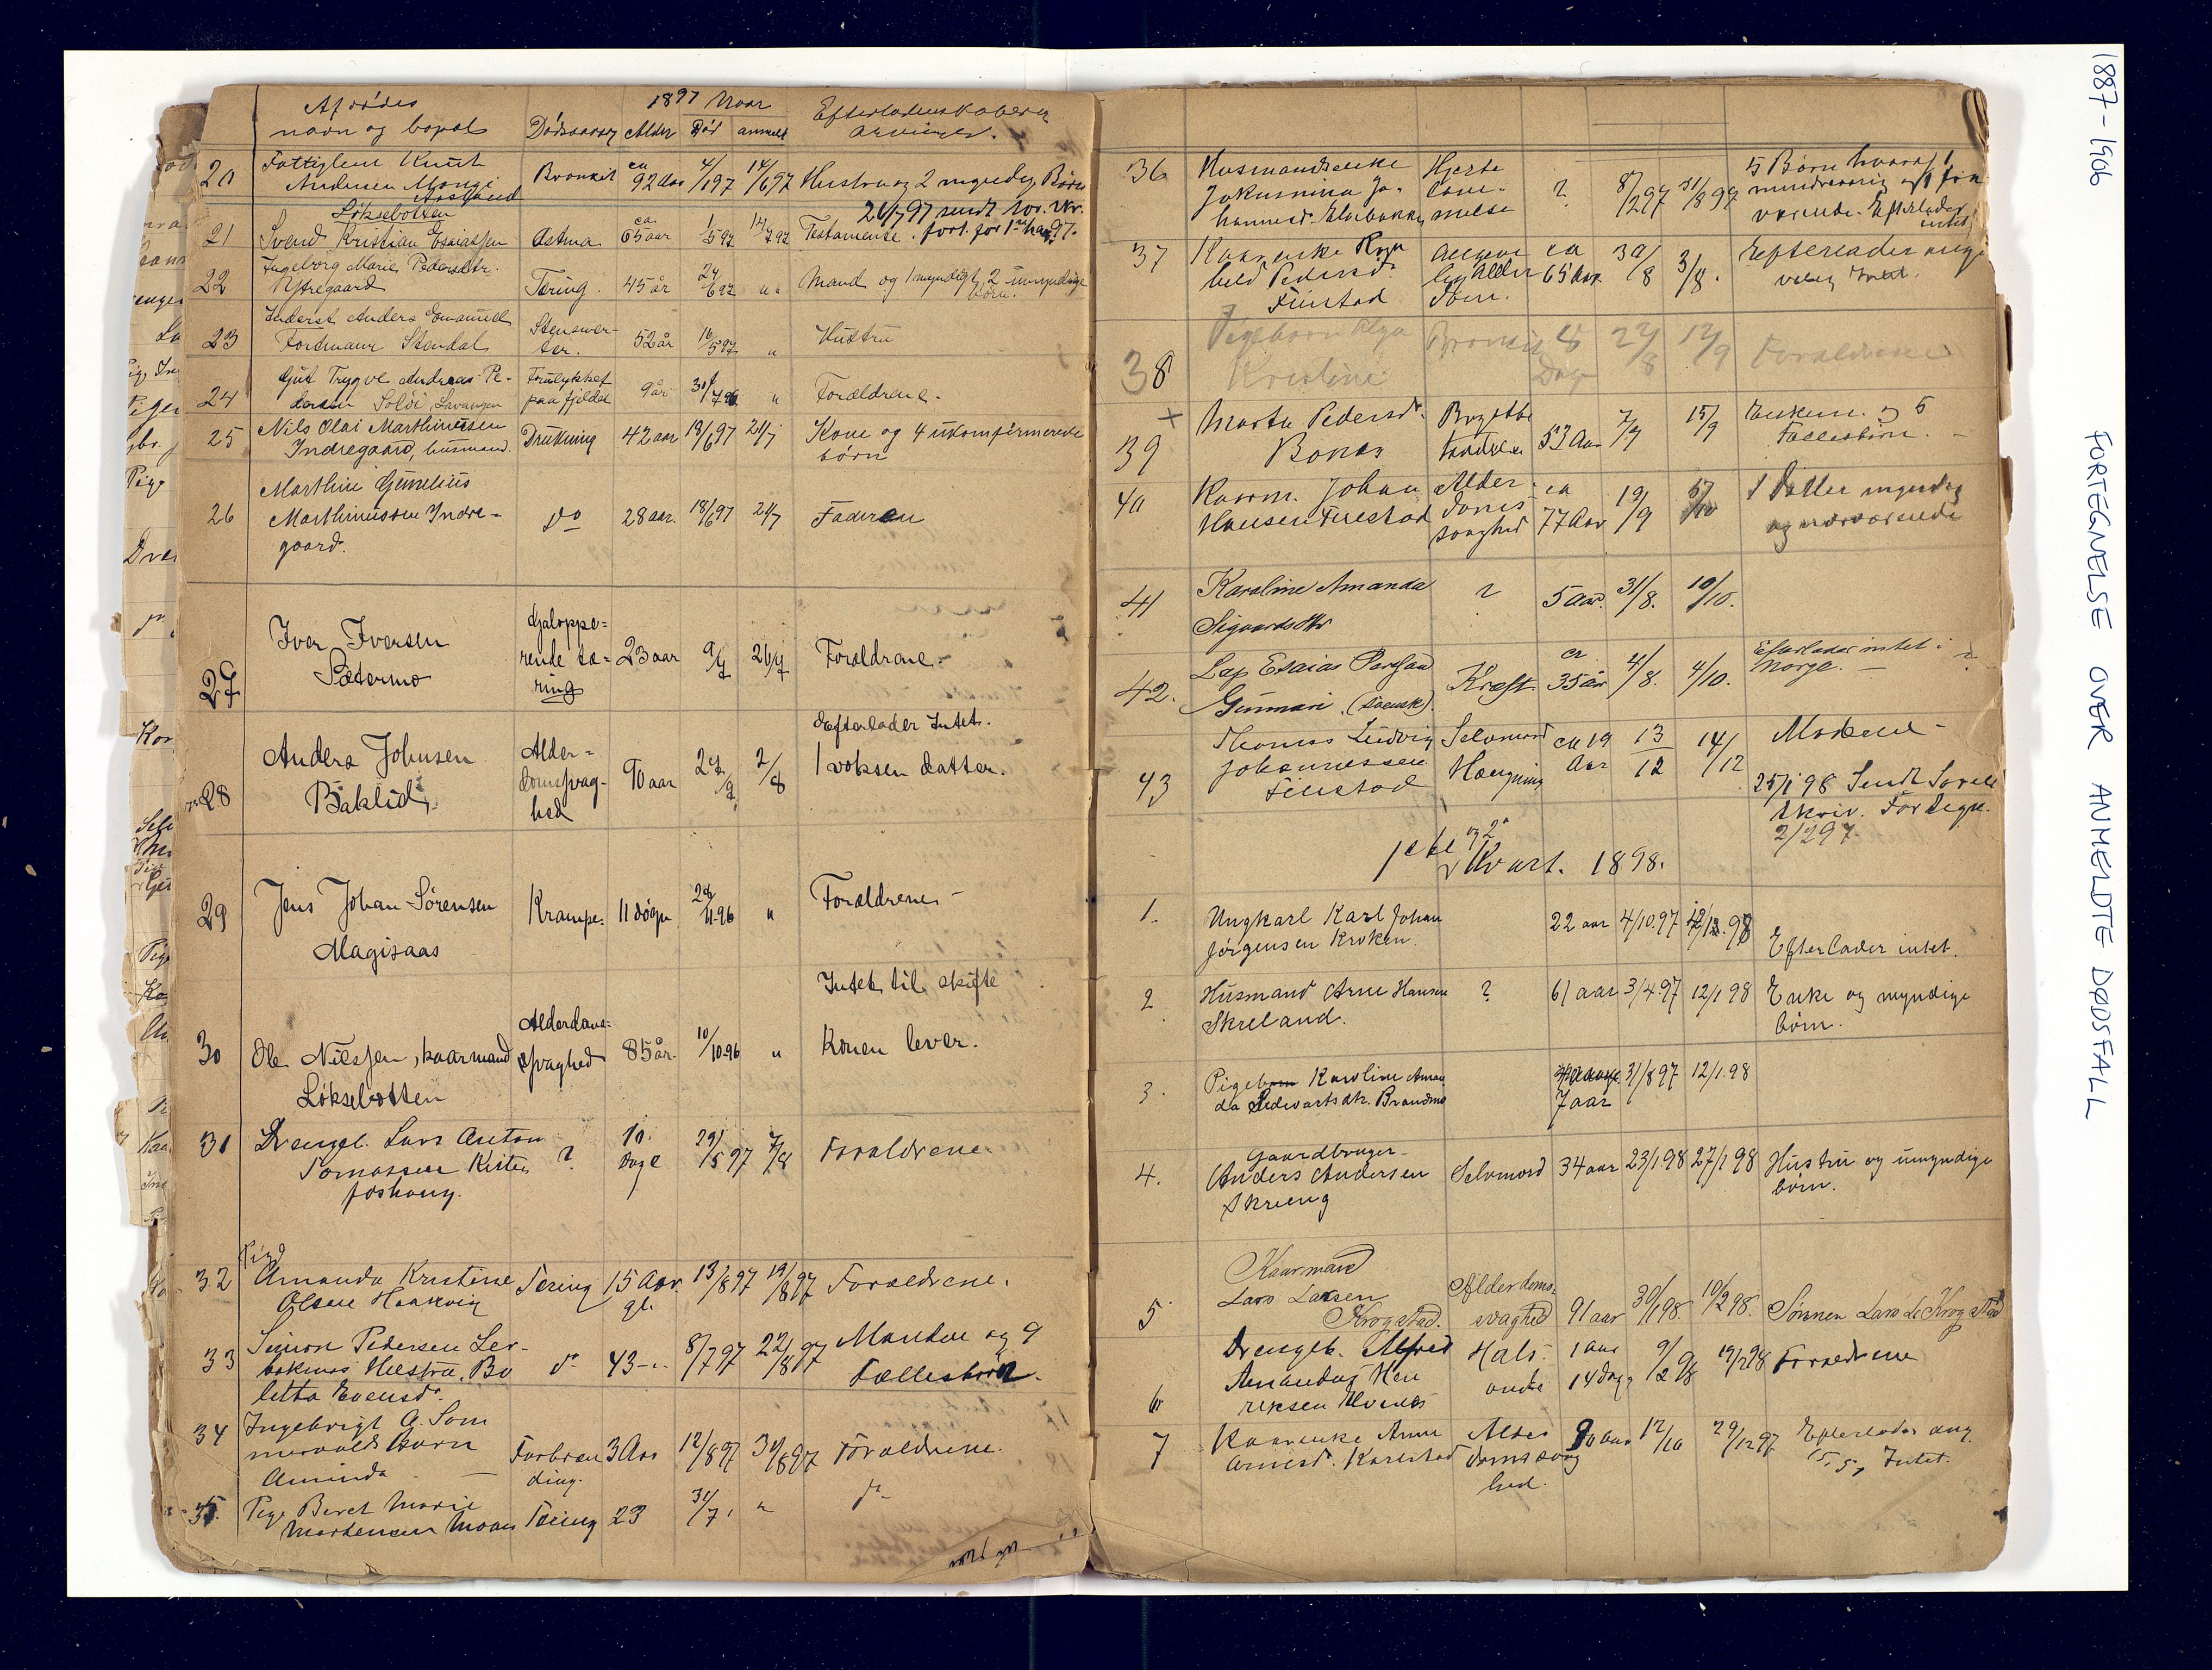 1887-1906 FORTEGNELSE OVER ANMELDTE DØDSFALL
Afdødes
navn og bopæl
Dødsaarsag
Alder
1897 Naar
Død
anmeldt
Efterladenskaber og
arvinger.
20
Fattiglem Knut
Andersen Mongi
Bronkit
ca
92 Aar
4/1 97
14/6 97
Hustru og 2 myndige Børn
Løksebotten
21
Svend Kristian Esaiassen
Astma
ca
65 aar
1/5 97
14/7 97
21/7 97 sendt
Testamente.
22
Ingeborg Marie Pedersdtr.
Ytregaard
Tæring.
45 år
24/6 97
"
Mand og 1 myndigt, 2 umyndige
børn.
23
Inderst Anders Emanuel
Fordmann Stendal
52 år
16/5 97
"
Hustru
24
Gut Trygve Andreas Pe-
dersen Soløi Lavangen
Forulykket
paa fjeldet
9 år
"
Forældrene.
25
Nils Olai Marthinussen
Indregaard, husmand.
Drukning
42 aar
18/6 97
21/7
Kone og 4 ukonfirmerede
børn
26
Marthin Gunelius
Marthinussen Indre-
gaard.
do
28 aar.
18/6 97
21/7
Faderen
27
Iver Iversen
Sætermo
Galoppe=
rende tæ=
ring
23 aar
9/7
26/7
Forældrene.
28
Anders Johnsen
Baklid,
Alder=
domssvag-
hed
90 aar
2/8
Efterlader Intet.
1 voksen datter.
29
Jens Johan Sørensen
Magisaas
Krampe.
11 døgn
"
Forældrene
30
Ole Nilssen, kaarmand
Løksebotten
Alderdoms=
svaghed
85 år.
10/10.96
"
Intet til skifte
Konen lever.
31
Drengeb. Lars Anton
Tomassen Kister
foshaug.
?
10.
Dage
29/5 97
7/8
Forældrene
32
Pige
Amanda Kristine
Olsen Haakvig
Tæring
15 Aar
gl.
13/8 97
19/8 97
Forældrene.
33
Simon Pedersen Ler-
bekmos Hustru. Bo
letta Evensd.
do
43 –"–
8/7 97
22/8 97
Manden og 9
Fællesbørn.
34
Ingebrigt A. Som
mervolds Barn
Aminda
Forbræn
ding.
3 Aar
12/8 97
31/8 97
Forældrene.
35.
Pige Beret Marie
Martensen Moan
Tæring
23
31/7.
"
do
36
Husmandsenke
Jakumina Jo-
hannesd. Elvebakken
Hjerte
lam-
melse
?
8/2 97
31/8 97
5 Børn hvoraf 1
mindreaarig og 1 fra
værende. Efterlader
intet
37
Kaarenke Ragn
hild Pedersd.
Finstad
ca
65 Aar.
30/8
3/8.
38
Pigebarn Olga
Kristine
Bronkit
Dage
12/9
Forældrene
+
39
Marta Pedersdr.
Bones
53 Aar
7/9
15/9
Enkem. og 5
Fællesbørn. –
40
Kaarm. Johan
Hansen Finstad
Alder-
doms
svaghed
ca
77 Aar
19/9
1 Datter myndig
og nærværende
41
Karoline Amanda
Sigvardsdtr
?
5 aar.
31/8.
10/10.
42.
Lap Esaias
(svensk).
Kræft.
ca
35 år
4/8.
4/10.
Efterlader intet i
Norge. –
?
43
Thomas Ludvig
Johannessen
Finstad
Selvmord
Hængning
ca 19
Aar
13/12
14/12
Moderen –
25/1 98 Sendt Soren
skriv. Fortegn.
2/2 97
1ste og 2det
Kvart. 1898.
1.
Ungkarl Karl Johan
Jørgensen Kroken.
22 aar
4/10.97
Efterlader intet.
2
Husmand Arne Hansen
Skreland.
?
61 aar
3/4 97
12/1 98
Enke og myndige
børn.
3.
Pigebarn Karoline Aman
da Sedvartsdtr. Brandmo
7 aar
31/8 97
12/1.98
4.
Gaardbruger
Anders Andersen
Skrieng
Selvmord
34 aar
23/1 98
27/1 98
Hustru og umyndige
børn.
5
Kaarmand
Lars Larsen
Krogstad.
Alderdoms-
svaghed
91 aar
30/1 98.
10/2 98.
Sønnen Lars L. Krogstad
6
Drengeb. Alfred
Amandus Hen
riksen Moenes
Hals-
onde
1 aar
14 dage
9/2 98
19/2 98
Forældrene
7
Kaarenke Anne
Arnesd. Karlstad
Alder
domssvag
hed.
90 aar
12/10
29/12 97
Efterlader ang.
Intet.